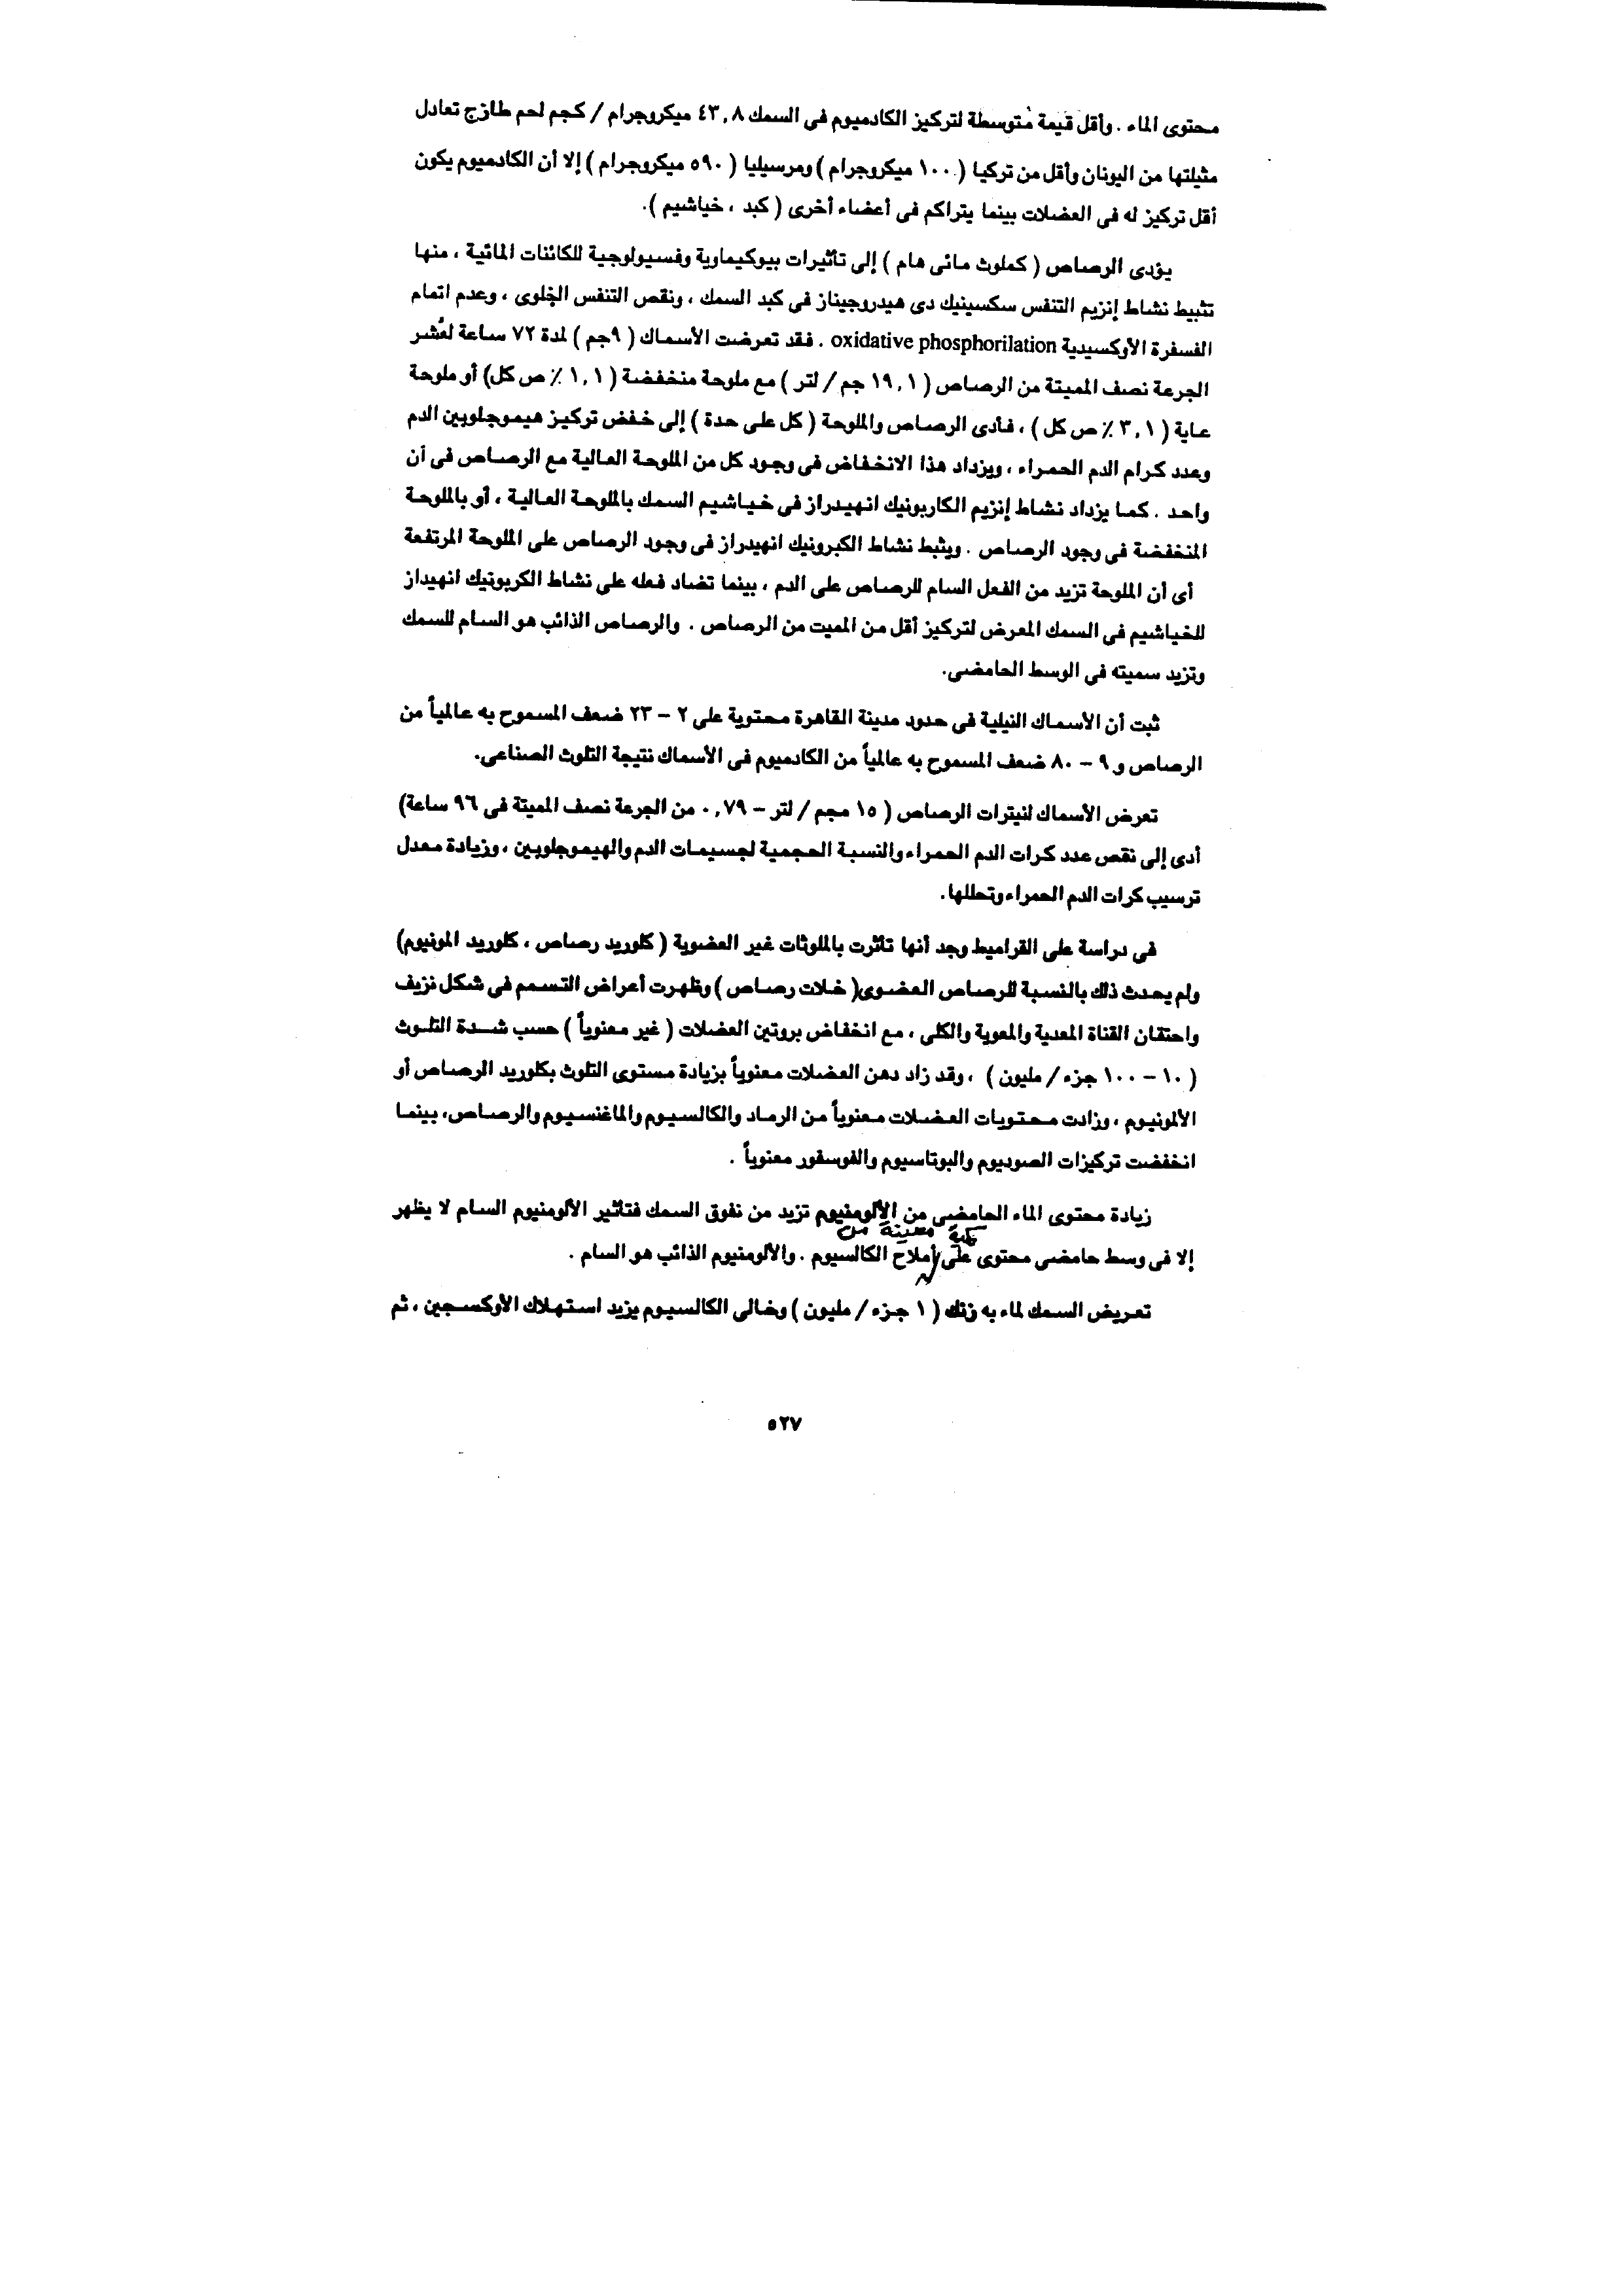 محتوى الماء . وأقل قيمة متوسطة لتركيز الكادميوم فى السمك ٤٣,٨ ميكروجرام / كجم لحم طازج تعادل
مثيلتها من اليونان وأقل من تركيا ( ١٠٠ ميكروجرام ) ومرسيليا ( ٥٩٠ ميكروجرام ) إلا أن الكادميوم يكون
أقل تركيز له فى العضلات بينما يتراكم فى أعضاء أخرى ( كبد ، خياشيم ).
يؤدى الرصاص ( كملوث مائى هام ) إلى تأثيرات بيوكيماوية وفسيولوجية للكائنات المائية ، منها
تثبيط نشاط إنزيم التنفس سكسينيك دى هيدروجيناز فى كبد السمك ، ونقص التنفس الخلوى ، وعدم اتمام
الفسفرة الأوكسيدية oxidative phosphorilation . فقد تعرضت الأسماك ( ٩جم ) لمدة ٧٢ ساعة لعُشر
الجرعة نصف المميتة من الرصاص ( ١٩,١ جم / لتر ) مع ملوحة منخفضة ( ١,١ ٪ ص كل) أو ملوحة
عاية ( ٣,١ ٪ ص كل ) ، فأدى الرصاص والملوحة ( كل على حدة ) إلى خفض تركيز هيموجلوبين الدم
وعدد كرام الدم الحمراء ، ويزداد هذا الانخفاض فى وجود كل من الملوحة العالية مع الرصاص فى أن
واحد . كما يزداد نشاط إنزيم الكاربونيك انهيدراز فى خياشيم السمك بالملوحة العالية ، أو بالملوحة
المنخفضة فى وجود الرصاص . ويثبط نشاط الكبرونيك انهيدراز فى وجود الرصاص على الملوحة المرتفعة
أى أن الملوحة تزيد من الفعل السام للرصاص على الدم ، بينما تضاد فعله على نشاط الكربونيك انهيداز
للخياشيم فى السمك المعرض لتركيز أقل من المميت من الرصاص . والرصاص الذائب هو السام للسمك
وتزيد سميته فى الوسط الحامضى.
ثبت أن الأسماك النيلية فى حدود مدينة القاهرة محتوية على ٢ – ٢٣ ضعف المسموح به عالمياً من
الرصاص و ٩ – ٨٠ ضعف المسموح به عالمياً من الكادميوم فى الأسماك نتيجة التلوث الصناعى.
تعرض الأسماك لنيترات الرصاص ( ١٥ مجم / لتر – ٠,٧٩ من الجرعة نصف المميتة فى ٩٦ ساعة)
أدى إلى نقص عدد كرات الدم الحمراء والنسبة الحجمية لجسيمات الدم والهيموجلوبين ، وزيادة معدل
ترسيب كرات الدم الحمراء وتحللها.
فى دراسة على القراميط وجد أنها تأثرت بالملوثات غير العضوية ( كلوريد رصاص ، كلوريد المونيوم)
ولم يحدث ذلك بالنسبة للرصاص العضوى( خلات رصاص ) وظهرت أعراض التسمم فى شكل نزيف
واحتقان القناة المعدية والمعوية والكلى ، مع انخفاض بروتين العضلات ( غير معنوياً ) حسب شدة التلوث
( ١٠ – ١٠٠ جزء / مليون ) ، وقد زاد دهن العضلات معنوياً بزيادة مستوى التلوث بكلوريد الرصاص أو
الألمونيوم ، وزادت محتويات العضلات معنوياً من الرماد والكالسيوم والماغنسيوم والرصاص، بينما
انخفضت تركيزات الصوديوم والبوتاسيوم والفوسفور معنوياً .
زيادة محتوى الماء الحامضى من الألومنيوم تزيد من نفوق السمك فتأثير الألومنيوم السام لا يظهر
كمية معينة من
إلا فى وسط حامضى محتوى على أملاح الكالسيوم . والألومنيوم الذائب هو السام .
تعريض السمك لماء به زنك ( ١ جزء / مليون ) وخالى الكالسيوم يزيد استهلاك الأوكسجين ، ثم
٥٢٧